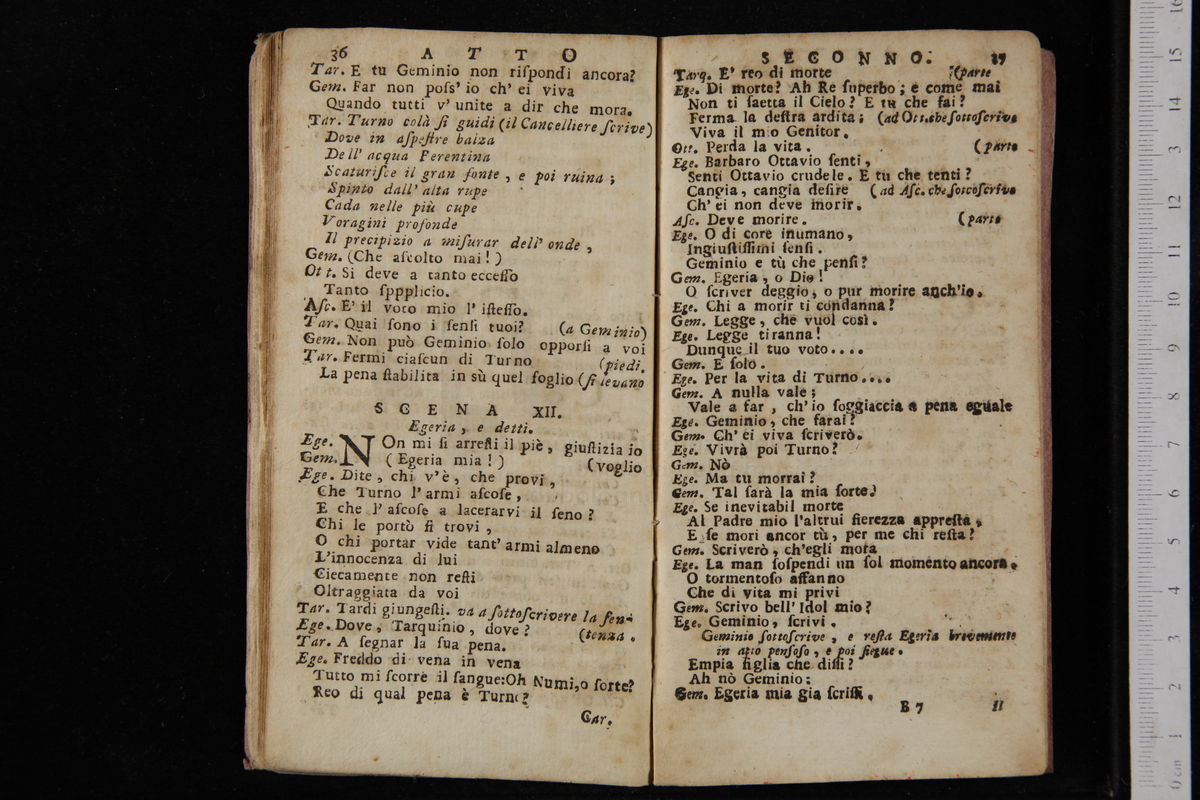 36 A T T O
Tar. E tu Geminio non riſpondi ancora?
Gem. Far non poſs' io ch' ei viva
Quando tutti v' unite a dir che mora.
Tar. Turno colà ſi guidi (il Cancelliere ſcrive)
Dove in aſpeſtre balza
Dell' acqua Ferentina
Scaturiſce il gran fonte , e poi ruina ;
Spinto dall' alta rupe
Cada nelle più cupe
Voragini profonde
Il precipizio a miſurar dell' onde ,
Gem. (Che aſcolto mai ! )
Ott. Si deve a tanto ecceſſo
Tanto ſppplicio.
Aſc. E' il voto mio l' iſteſſo.
Tar. Quai ſono i ſenſi tuoi? (a Geminio)
Gem. Non può Geminio ſolo opporſi a voi
Tar. Fermi ciaſcun di Turno (piedi.
La pena ſtabilita in sù quel foglio (ſi levano
S C E N A XII.
Egeria , e detti.
Ege. NOn mi ſi arreſti il piè , giuſtizia io
Gem. ( Egeria mia ! ) (voglio
Ege. Dite , chi v'è , che provi ,
Che Turno l' armi aſcoſe ,
E che l' aſcoſe a lacerarvi il ſeno ?
Chi le portò ſi trovi ,
O chi portar vide tant' armi almeno
L'innocenza di lui
Ciecamente non reſti
Oltraggiata da voi
Tar. Tardi giungeſti. va a ſottoſcrivere la ſen-
Ege. Dove , Tarquinio , dove ? (tenza .
Tar. A ſegnar la ſua pena.
Ege. Freddo di vena in vena
Tutto mi ſcorre il ſangue:Oh Numi,o ſorte?
Reo di qual pena è Turno?
Car.
S E C O N N O. 37
Tarq. E' reo di morte (parte
Ege. Di morte? Ah Re ſuperbo ; e come mai
Non ti ſaetta il Cielo? E tu che fai ?
Ferma la deſtra ardita ; (ad Ott.che ſottoſcrive
Viva il mio Genitor.
Ott. Perda la vita . (parte
Ege. Barbaro Ottavio ſenti ,
Senti Ottavio crudele. E tu che tenti ?
Cangia, cangia deſire (ad Aſc. che ſotcoſcrive
Ch' ei non deve morir.
Aſc. Deve morire. (parte
Ege. O di core inumano,
Ingiuſtiſſimi ſenſi .
Geminio e tù che penſi ?
Gem. Egeria , o Dio !
O ſcriver deggio, o pur morire anch'io.
Ege. Chi a morir ti condanna ?
Gem. Legge , che vuol così .
Ege. Legge tiranna !
Dunque il tuo voto....
Gem. E ſolo .
Ege. Per la vita di Turno....
Gem. A nulla vale ;
Vale a far , ch' io ſoggiaccia a pena eguale
Ege. Geminio , che farai ?
Gem. Ch' ei viva ſcriverò.
Ege. Vivrà poi Turno ?
Gem. Nò
Ege. Ma tu morrai ?
Gem. Tal ſarà la mia ſorte.
Ege. Se inevitabil morte
Al Padre mio l'altrui fierezza appreſta ,
E ſe mori ancor tù , per me chi reſta ?
Gem. Scriverò , ch'egli mora
Ege. La man ſoſpendi un ſol momento ancora.
O tormentoſo affanno
Che di vita mi privi
Gem. Scrivo bell' Idol mio ?
Ege. Geminio , ſcrivi .
Geminio ſottoſcrive , e reſta Egeria brevemente
in atto penſoſo , e poi ſiegue .
Empia figlia che diſſi ?
Ah nò Geminio :
Gem. Egeria mia gia ſcriſſi .
B 7 Il